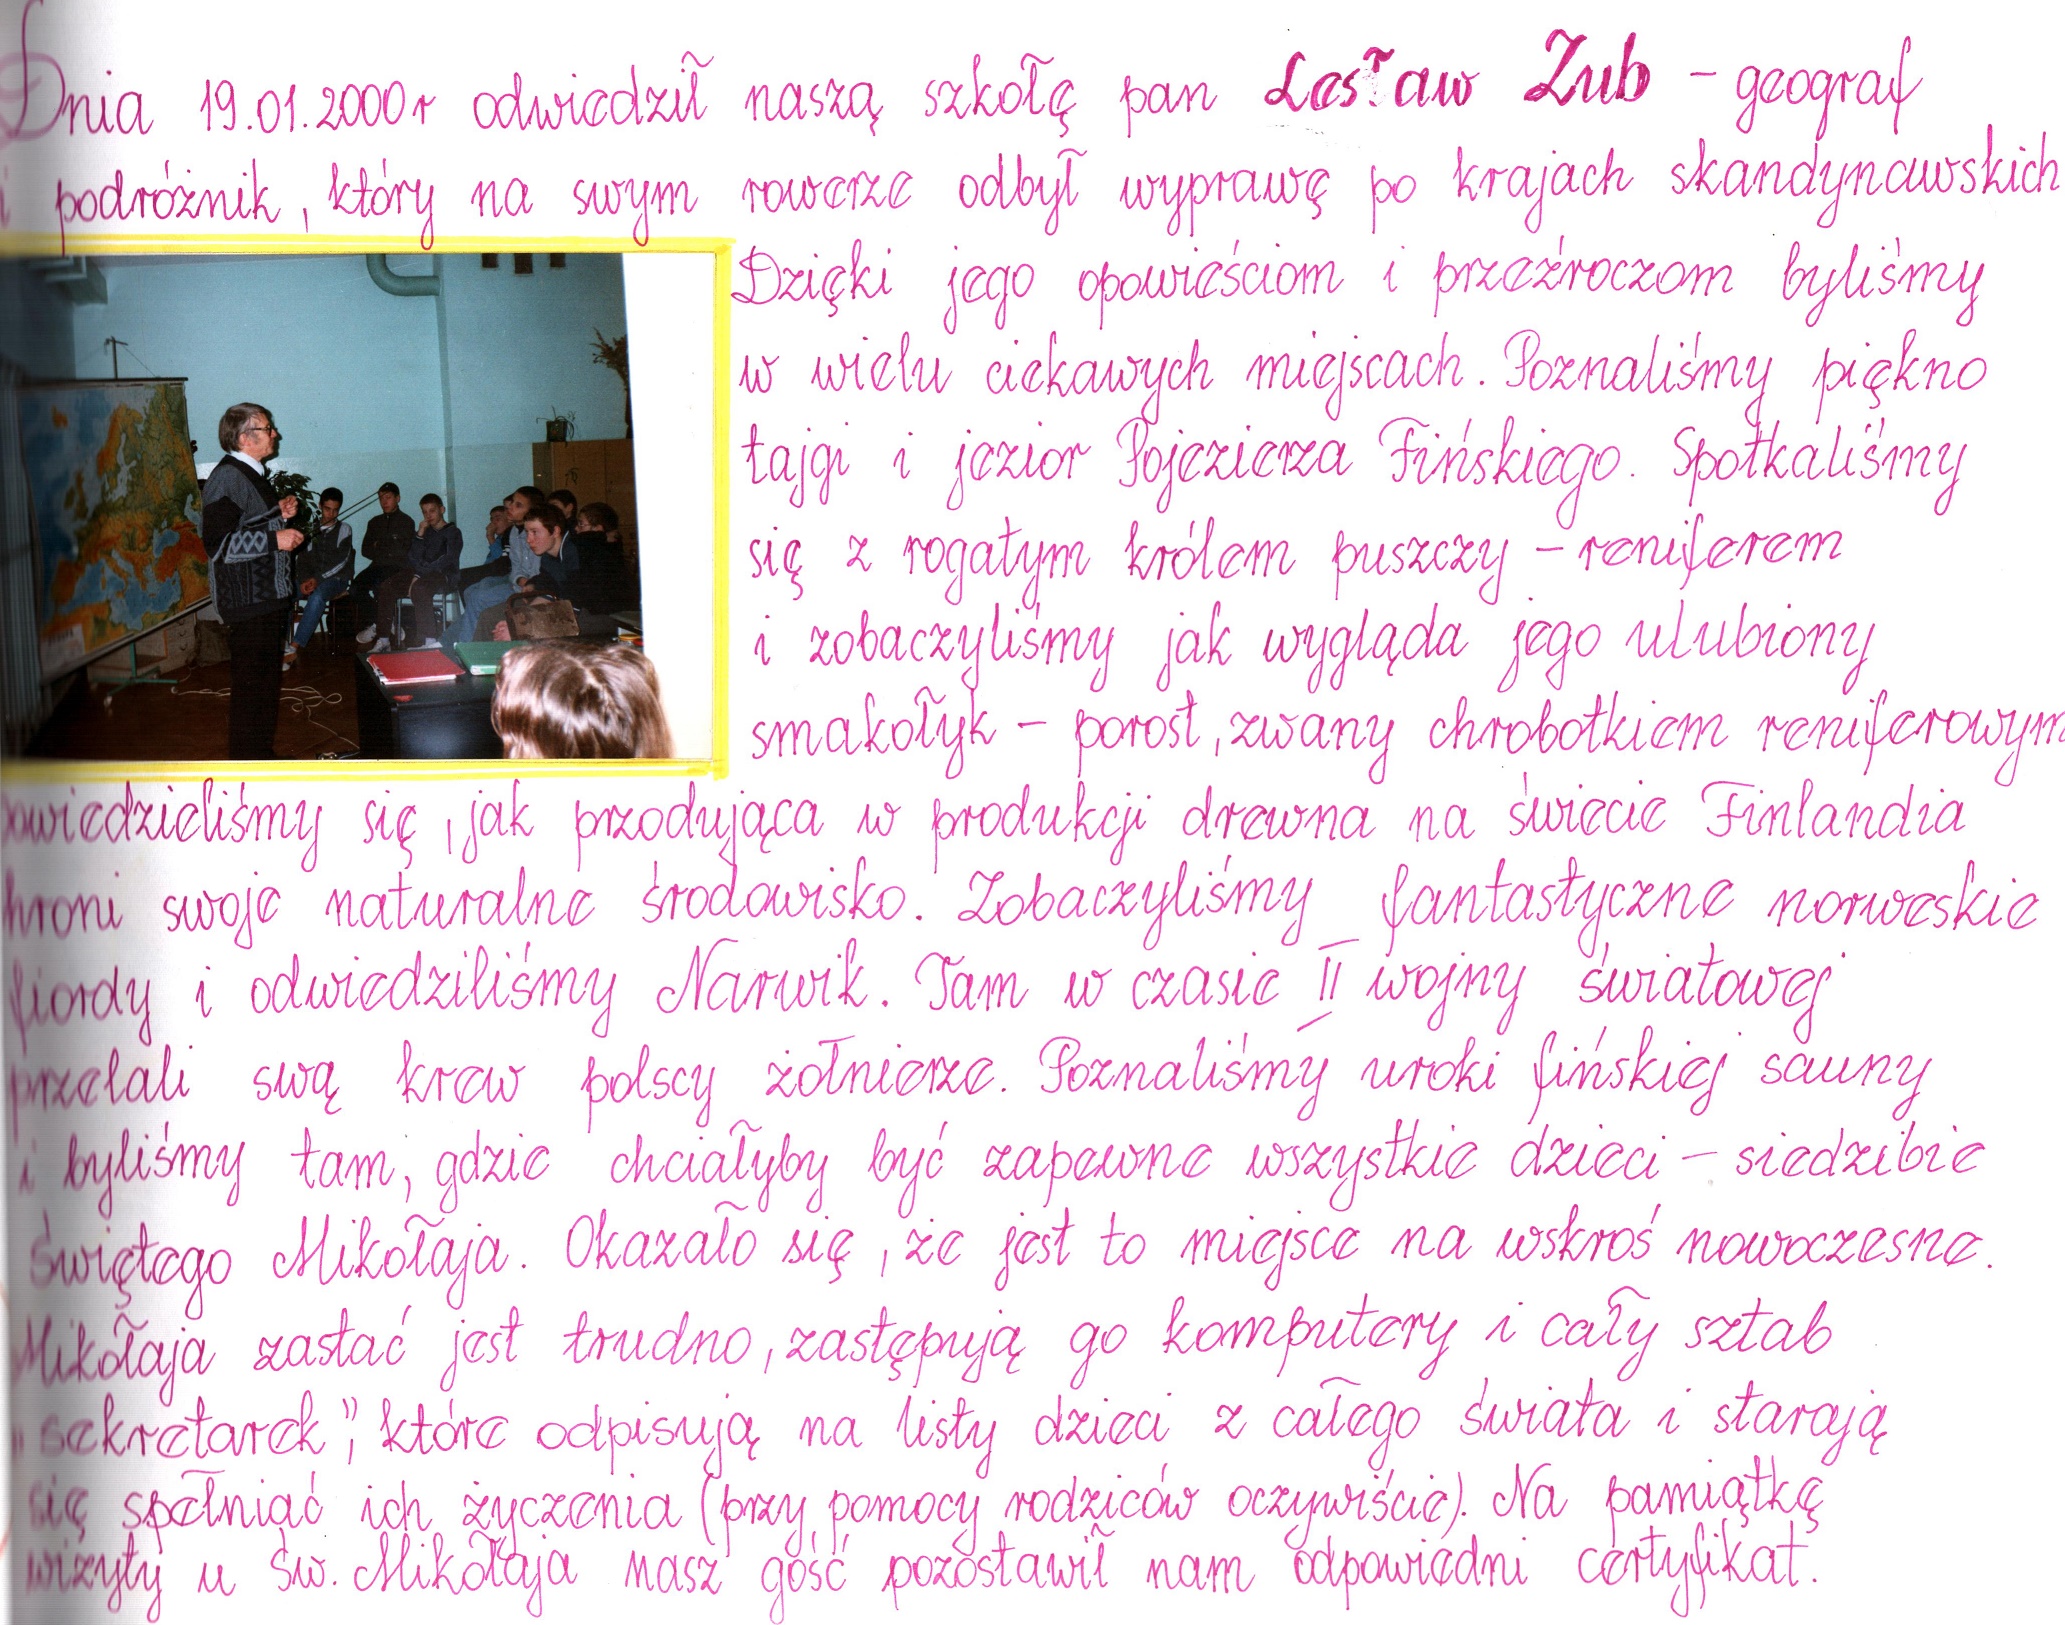 Dnia 19.01.2000r odwiedził naszą szkołę pan Lesław Zub - geograf
i podróżnik, który na swym rowerze odbył wyprawę po krajach skandynawskich
Dzięki jego opowieściom i przeźroczom byliśmy
w wielu ciekawych miejscach. Poznaliśmy piękno
tajgi i jezior Pojezierza Fińskiego. Spotkaliśmy
się z rogatym królem puszczy - reniferem
i zobaczyliśmy jak wygląda jego ulubiony
smakołyk - porost, zwany chrobotkiem reniferowym
owiedzieliśmy się, jak przodująca w produkcji drewna na świecie Finlandia
hroni swoje naturalne środowisko. Zobaczyliśmy fantastyczne norweskie
fiordy i odwiedziliśmy Narwik. Tam w czasie II wojny światowej
przelali swą krew polscy żołnierze. Poznaliśmy uroki fińskiej sauny
i byliśmy tam, gdzie chciałyby być zapewne wszystkie dzieci - siedzibie
Świętego Mikołaja. Okazało się, że jest to miejsce na wskroś nowoczesne.
Mikołaja zastać jest trudno, zastępują go komputery i cały sztab
„sekretarek”, które odpisują na listy dzieci z całego świata i starają
się spełniać ich życzenia (przy pomocy rodziców oczywiście). Na pamiątkę
wizyty u Św. Mikołaja nasz gość pozostawił nam odpowiedni certyfikat.